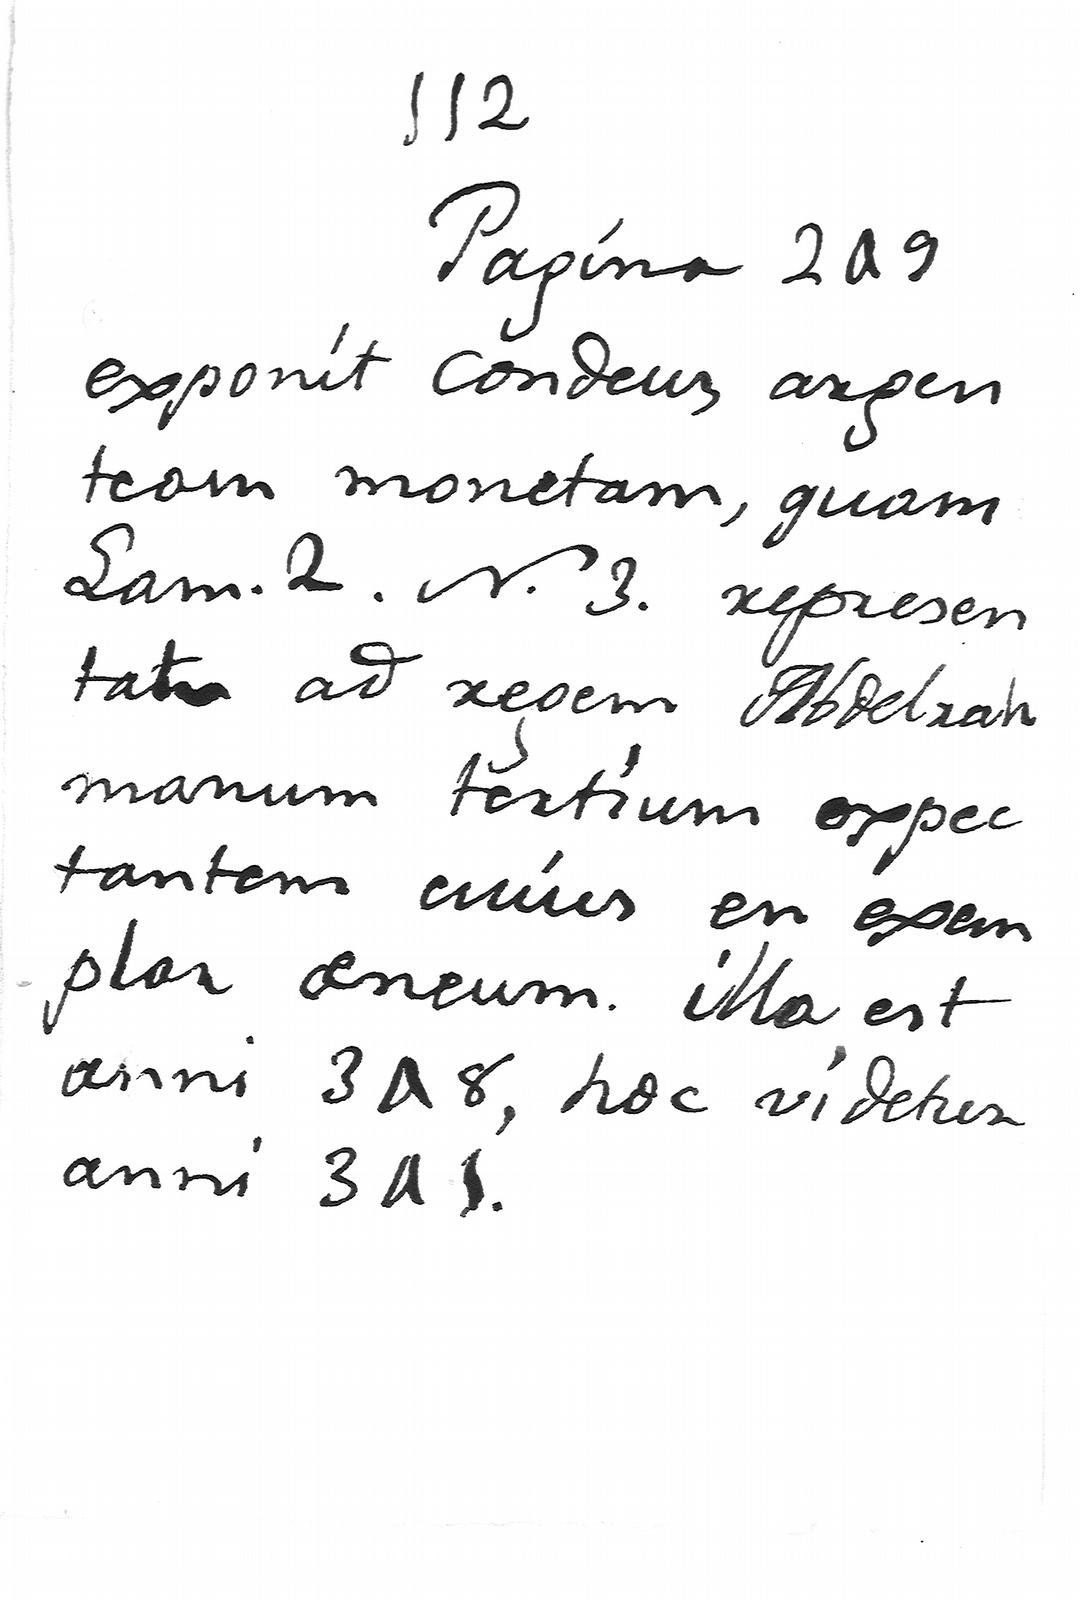 112
Pagina 249
exponit Condeus argen
team monetam, quam
Lam. 2. N. 3. represen
tat ad regem Abdelrah
manum tertium expec
tantem cuius en exem
plar æneum. illa est
anni 348, hoc videtur
anni 341.